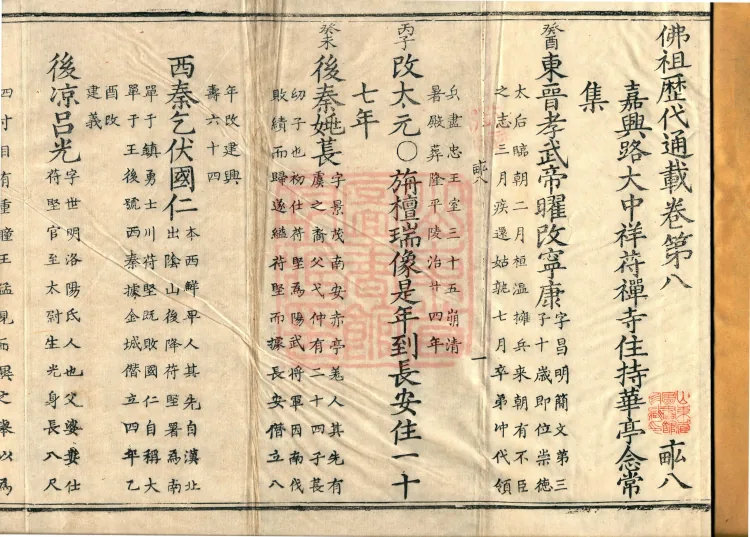 佛祖歷代通載卷第八 畝八
嘉興路大中祥符禪寺住持華亭念常
集
癸酉
東晉孝武帝曜改寧康
字昌明簡文第三
子十歲即位崇德
太后臨朝二月桓溫擁兵來朝有不臣
之志三月疾還姑孰七月卒弟冲代領
畝八
一
兵盡忠王室三十五崩清
暑殿葬隆平陵治廿四年
丙子
改太元○旃檀瑞像是年到長安住一十
七年
癸未
後秦姚萇
字景茂南安赤亭羌人其先有
虞之裔父弋仲有二十四子萇
幼子也初仕苻堅為陽武將軍因南伐
敗績而歸遂縊苻堅而據長安僭立八
年改建興
壽六十四
西秦乞伏國仁
本西鮮卑人其先自漠北
出陰山後降苻堅署為南
單于鎮勇士川苻堅既敗國仁自稱大
單于王後號西秦據金城僭立四年乙
酉改
建義
後凉呂光
字世明洛陽氏人也父婆婁仕
苻堅官至太尉生光身長八尺
四寸目有重瞳王猛見而異之舉以為